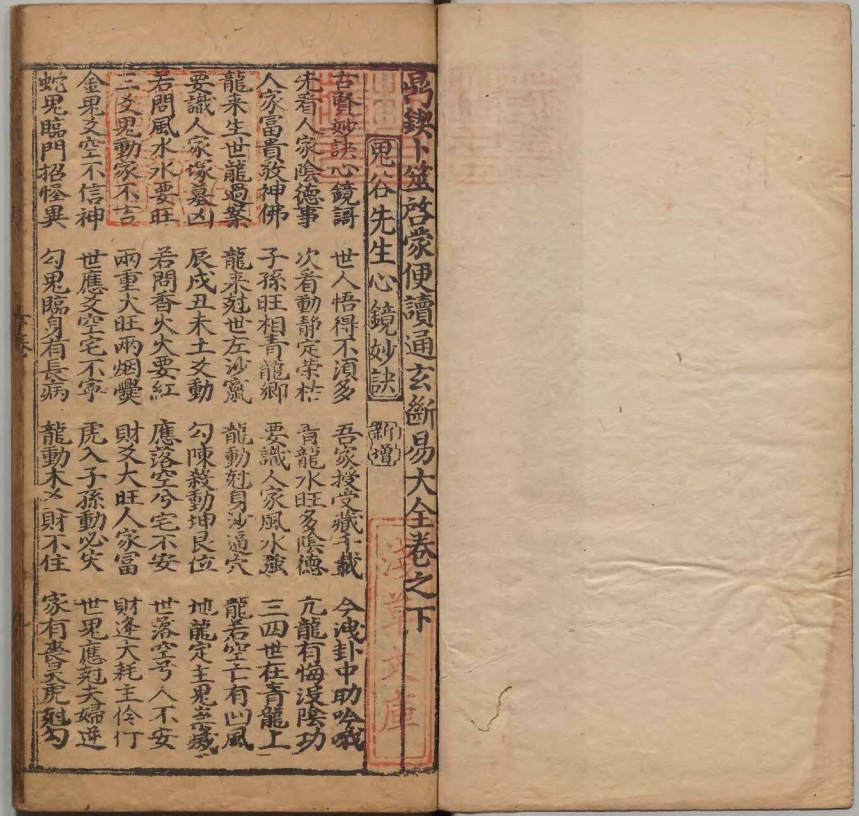 鼎鍥卜筮啓蒙便讀通玄斷易大全卷之下
鬼谷先生心鏡妙訣 新增
古賢妙訣心鏡謌 世人悟得不湏多 吾家授受藏千載 今洩卦中助吟哦
先看人家陰德事 次看動靜定荣枯 青龍水旺多陰德 亢龍有悔没陰功
人家富貴敬神佛 子孫旺相青龍卿 要識人家風水強 三四世在青龍上
龍来生世龍過案 龍来尅世左沙竄 龍動尅身沙逼穴 龍若空亡有凹風
要識人家塚墓凶 辰戌丑未土爻動 勾陳殺動坤艮位 地龍定主鬼
若問風水水要旺 若問香火火要紅 應落空兮宅不安 世落空兮人不安
三爻鬼動家不吉 兩重火旺兩烟爨 財爻大旺人家富 財逢大耗主伶仃
金鬼爻空不信神 世應爻空宅不寧 虎入子孫動必失 世鬼應尅夫婦逆
蛇鬼臨門招怪異 勾鬼臨身有長病 龍動木爻財不住 家有喪哭虎尅勾
下卷
淺草文庫